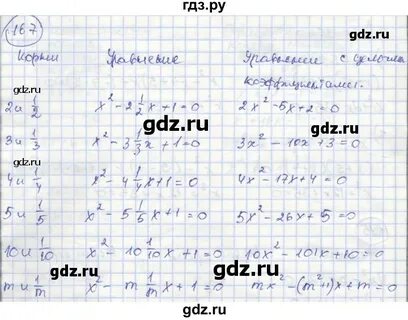 гдз.ру
167
Корни Уравнение Уравнение с целыми коэффициентами.
2 и 1/2 x² - 2 1/2 x + 1 = 0 2x² - 5x + 2 = 0
3 и 1/3 x² - 3 1/3 x + 1 = 0 3x² - 10x + 3 = 0
4 и 1/4 x² - 4 1/4 x + 1 = 0 4x² - 17x + 4 = 0
5 и 1/5 x² - 5 1/5 x + 1 = 0 5x² - 26x + 5 = 0
10 и 1/10 x² - 10 1/10 x + 1 = 0 10x² - 101x + 10 = 0
m и 1/m x² - m 1/m x + 1 = 0 mx² - (m² + 1)x + m = 0
gdz.ru
gdz.ru
gdz.ru
gdz.ru
gdz.ru
gdz.ru
gdz.ru
gdz.ru